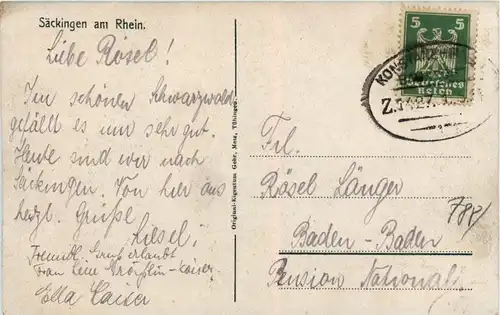 Säckingen am Rhein.
Liebe Rösel!
Im schönen Schwarzwald
gefällt es uns sehr gut.
Heute sind wir nach
Säckingen. Von hier aus
herzl. Grüße
Liesel.
Freundl. Gruß erlaubt
Frau Lene -Kaiser.
Ella Kaiser
Original-Eigentum Gebr. Metz, Tübingen.
5 5
Deutsches
Reich
KONSTANZ
Z.
Frl.
Rösel Länger
Baden-Baden
Pension National